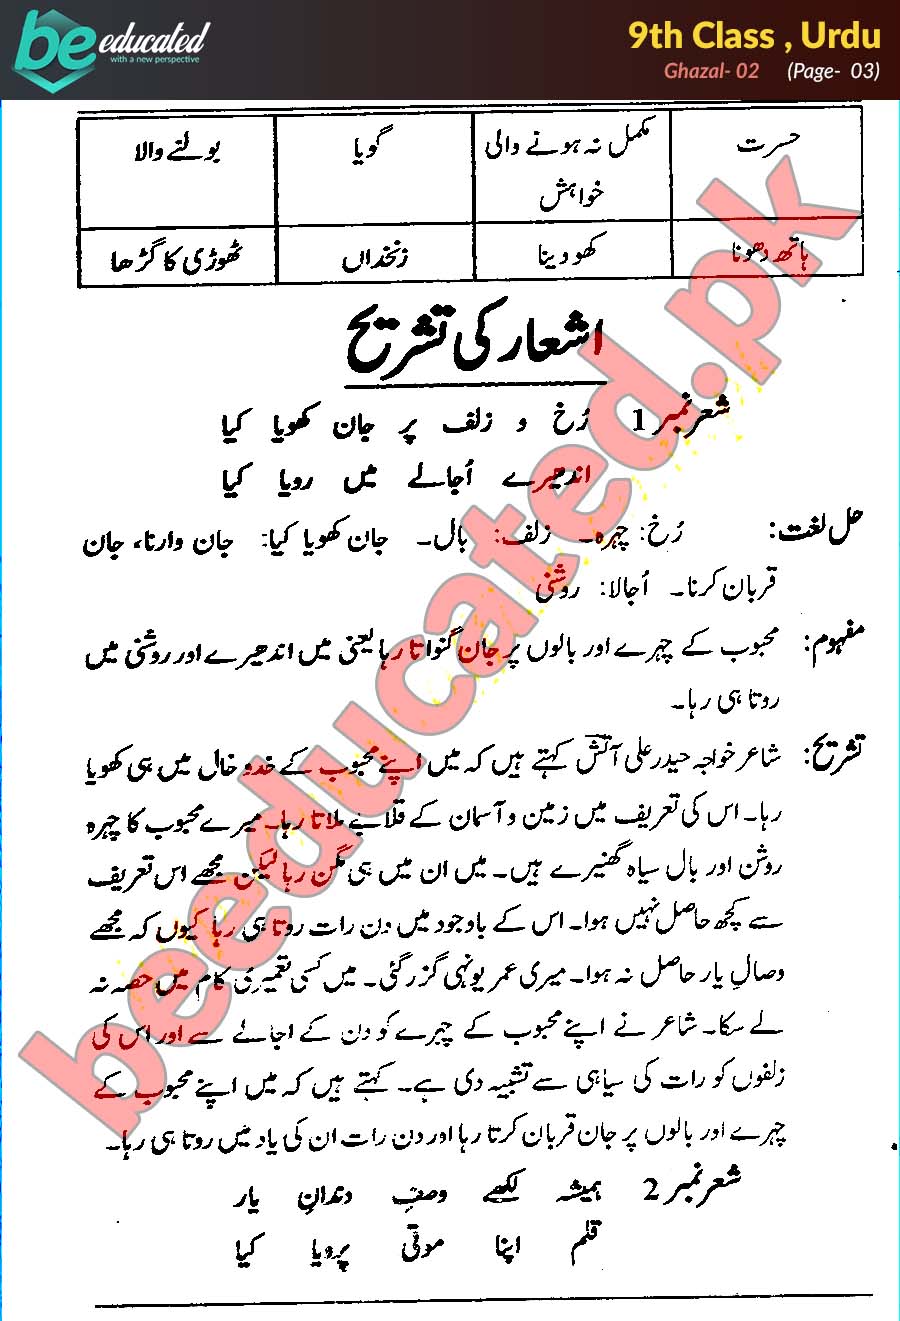 be educated
with a new perspective
9th Class , Urdu
Ghazal- 02 (Page- 03)
حسرت مکمل نہ ہونے والی خواہش گویا بولنے والا
ہاتھ دھونا کھو دینا زنخداں ٹھوڑی کا گڑھا
اشعار کی تشریح
شعر نمبر 1 رُخ و زلف پر جان کھویا کیا
اندھیرے اُجالے میں رویا کیا
حل لغت: رُخ: چہرہ۔ زلف: بال۔ جان کھویا کیا: جان وارنا، جان
قربان کرنا۔ اُجالا: روشنی
مفہوم: محبوب کے چہرے اور بالوں پر جان گنواتا رہا یعنی میں اندھیرے اور روشنی میں
روتا ہی رہا۔
تشریح: شاعر خواجہ حیدر علی آتشؔ کہتے ہیں کہ میں اپنے محبوب کے خدوخال میں ہی کھویا
رہا۔ اس کی تعریف میں زمین و آسمان کے قلابے ملاتا رہا۔ میرے محبوب کا چہرہ
روشن اور بال سیاہ گھنیرے ہیں۔ میں ان میں ہی مگن رہا لیکن مجھے اس تعریف
سے کچھ حاصل نہیں ہوا۔ اس کے باوجود میں دن رات روتا ہی رہا کیوں کہ مجھے
وصالِ یار حاصل نہ ہوا۔ میری عمر یونہی گزر گئی۔ میں کسی تعمیری کام میں حصہ نہ
لے سکا۔ شاعر نے اپنے محبوب کے چہرے کو دن کے اجالے سے اور اس کی
زلفوں کو رات کی سیاہی سے تشبیہ دی ہے۔ کہتے ہیں کہ میں اپنے محبوب کے
چہرے اور بالوں پر جان قربان کرتا رہا اور دن رات ان کی یاد میں روتا ہی رہا۔
شعر نمبر 2 ہمیشہ لکھے وصفِ دندانِ یار
قلم اپنا موتی پرویا کیا
beeducated.pk